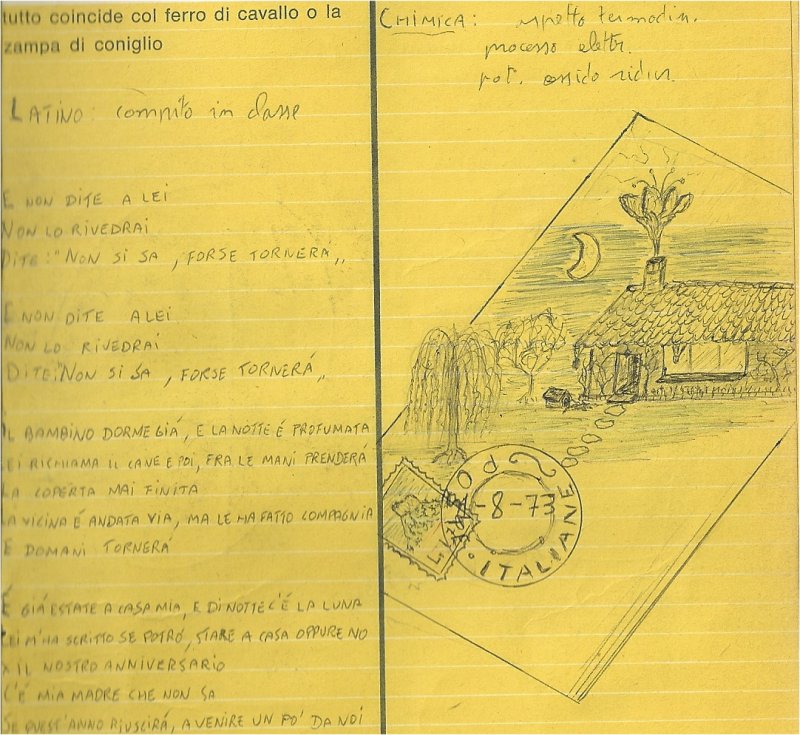 tutto coincide col ferro di cavallo o la
zampa di coniglio
LATINO: compito in classe
E NON DITE A LEI
NON LO RIVEDRAI
DITE: "NON SI SA, FORSE TORNERÁ"
E NON DITE A LEI
NON LO RIVEDRAI
DITE: "NON SI SA, FORSE TORNERÁ"
IL BAMBINO DORME GIÁ, E LA NOTTE É PROFUMATA
LEI RICHIAMA IL CANE E POI, FRA LE MANI PRENDERÁ
LA COPERTA MAI FINITA
LA VICINA É ANDATA VIA, MA LE HA FATTO COMPAGNIA
E DOMANI TORNERÁ
É GIÁ ESTATE A CASA MIA, E DI NOTTE C'É LA LUNA
LEI M'HA SCRITTO SE POTRÓ, STARE A CASA OPPURE NO
X IL NOSTRO ANNIVERSARIO
C'É MIA MADRE CHE NON SA
SE QUEST'ANNO RIUSCIRÁ, A VENIRE UN PO' DA NOI
CHIMICA: aspetto termodin.
processo elettr.
pot. ossido riduz.
POSTE
-8-73
ITALIANE